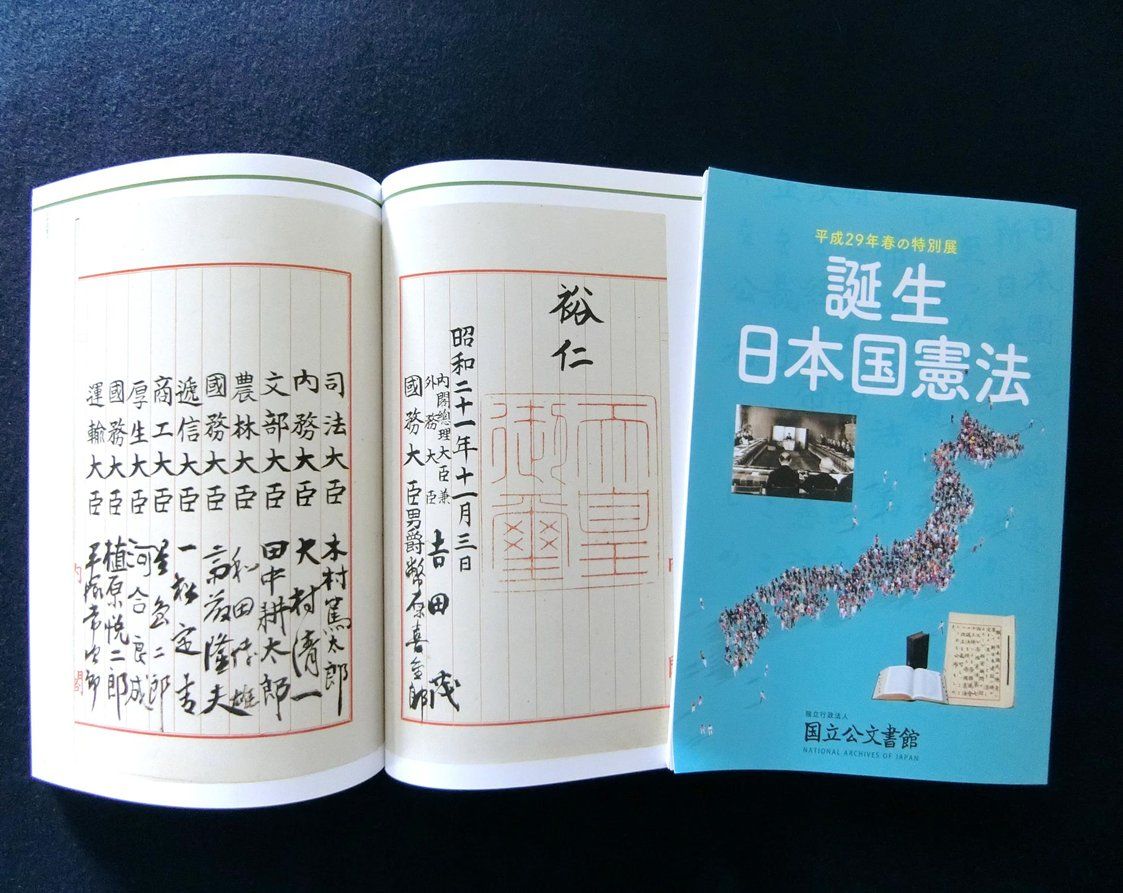 裕仁
天皇
御璽
昭和二十一年十一月三日
内閣總理大臣兼
外務大臣 吉田茂
國務大臣男爵幣原喜重郎
司法大臣 木村篤太郎
内務大臣 大村清一
文部大臣 田中耕太郎
農林大臣 和田博雄
國務大臣 斎藤隆夫
遞信大臣 一松定吉
商工大臣 星島二郎
厚生大臣 河合良成
國務大臣 植原悦二郎
運輸大臣 平塚常次郎
内閣
平成29年春の特別展
誕生
日本国憲法
独立行政法人
国立公文書館
NATIONAL ARCHIVES OF JAPAN